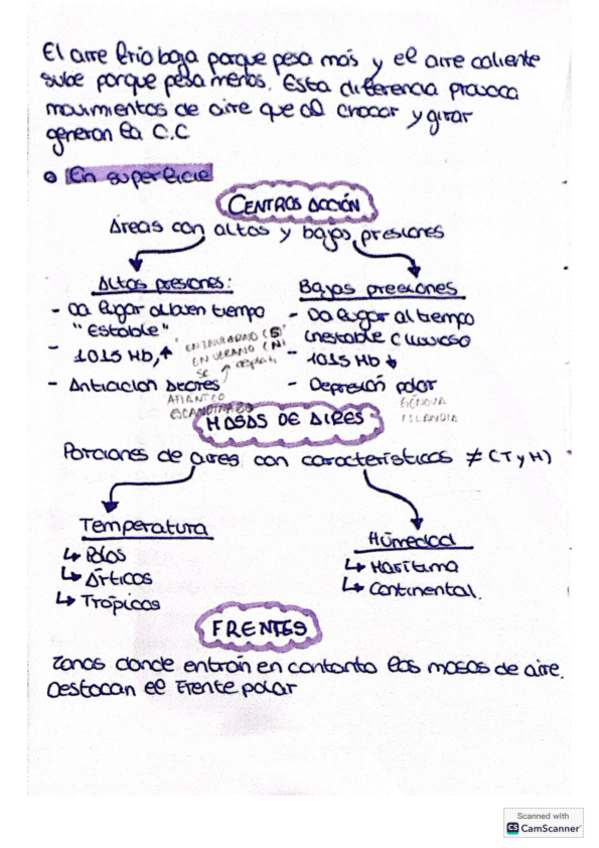 El aire frio baja porque pesa más y el aire caliente
sube porque pesa menos. Esta diferencia provoca
movimientos de aire que al chocar y girar
generan la C.C
En superficie
CENTROS ACCIÓN
Áreas con altas y bajas presiones
Altas presiones:
- Da lugar al buen tiempo
"Estable"
- 1015 Mb, ↑ EN INVIERNO (S)
EN VERANO (N)
SE
- Anticiclon Azores
ATLANTICO
ESCANDINAVO
Bajas presiones
- Da lugar al tiempo
inestable (lluvioso
- 1015 Mb ↓
- Depresión polar
GÉNOVA
ISLANDIA
MASAS DE AIRES
Porciones de aires con características ≠ (T y H)
Temperatura
↳ Polos
↳ Árticos
↳ Trópicos
Húmedad
↳ Marítima
↳ Continental.
FRENTES
Zonas donde entran en contanto las masas de aire.
Destacan el Frente polar
Scanned with
CS CamScanner